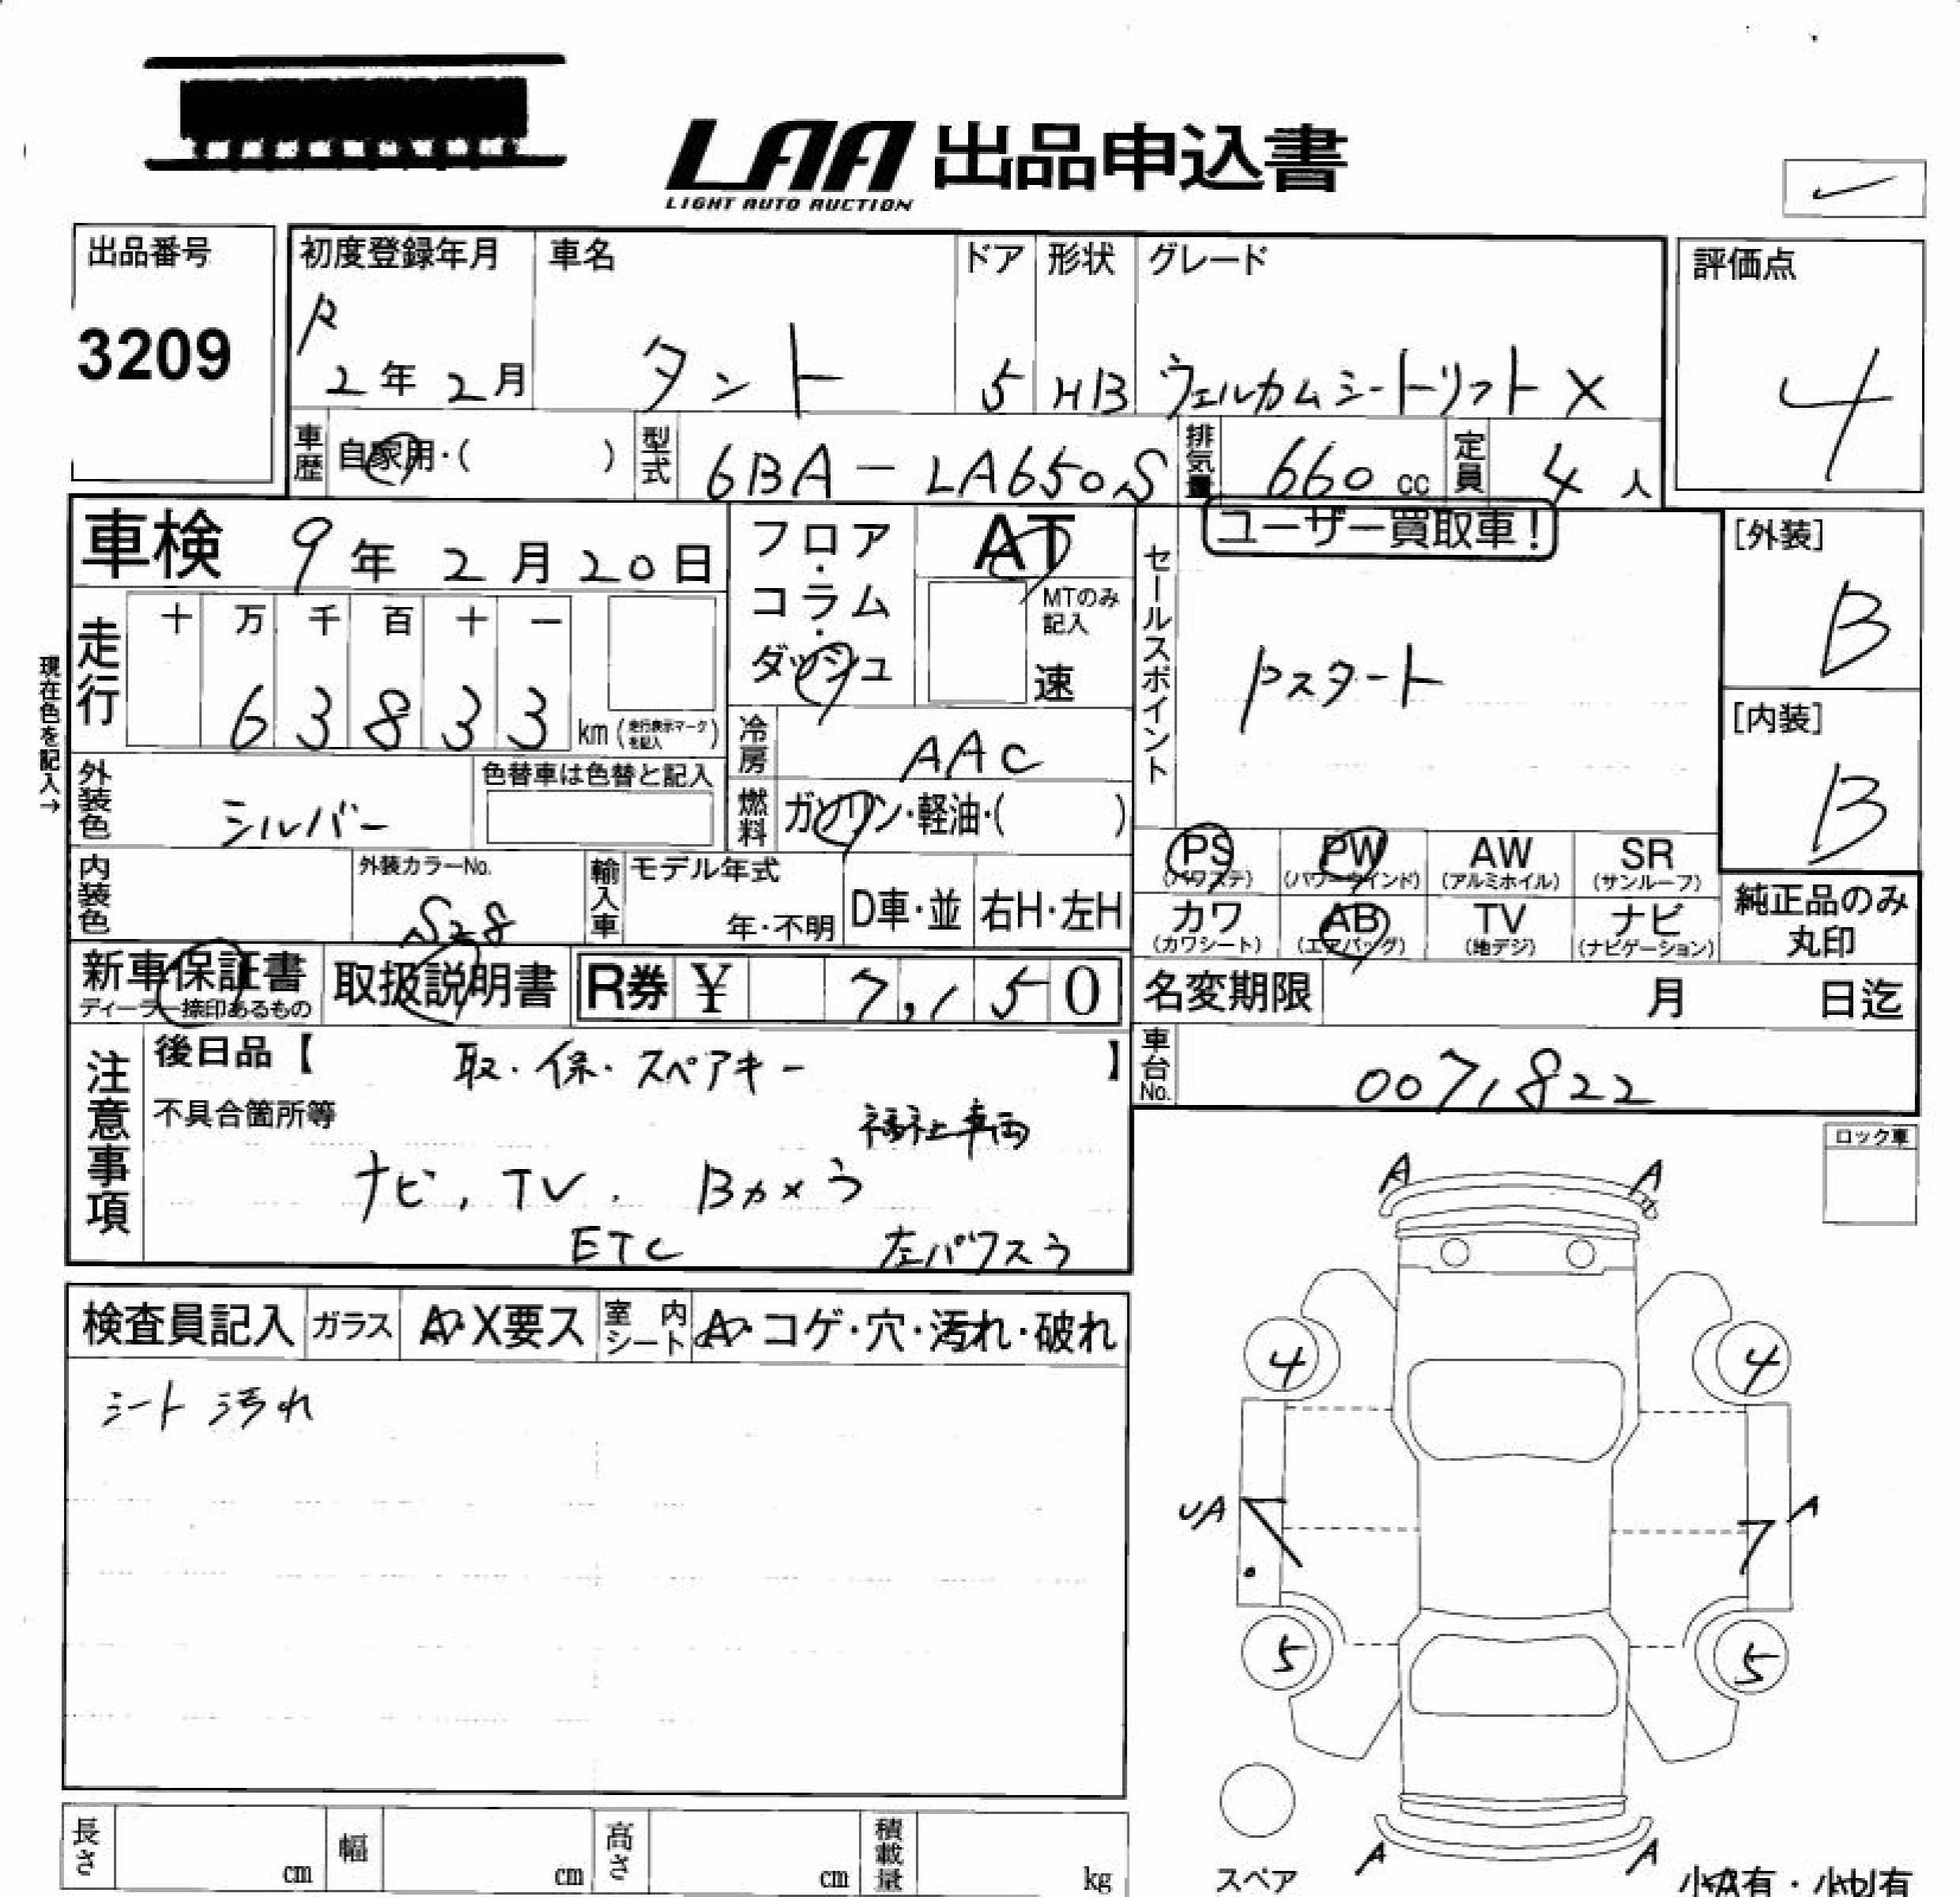 LAA 出品申込書
LIGHT AUTO AUCTION
出品番号
3209
初度登録年月
R
2年2月
車名
タント
ドア
5
形状
HB
グレード
ウェルカムシートリフト X
評価点
4
車歴
自家用・( )
型式
6BA-LA650S
排気量
660 cc
定員
4人
車検 9年2月20日
フロア・コラム・ダッシュ
AT
MTのみ記入
速
セールスポイント
ユーザー買取車!
Pスタート
[外装]
B
[内装]
B
現在色を記入→
走行
十 万 千 百 十 一
6 3 8 3 3 km(走行表示マークを記入)
冷房
AAC
外装色
シルバー
色替車は色替と記入
燃料
ガソリン・軽油・( )
内装色
外装カラーNo.
S28
輸入車
モデル年式
年・不明
D車・並
右H・左H
PS
(パワステ)
PW
(パワーウインド)
AW
(アルミホイル)
SR
(サンルーフ)
カワ
(カワシート)
AB
(エアバッグ)
TV
(地デジ)
ナビ
(ナビゲーション)
純正品のみ
丸印
新車保証書
ディーラー捺印あるもの
取扱説明書
R券 ¥ 7,150
名変期限 月 日迄
車台No.
0071822
注意事項
後日品【 取・保・スペアキー 】
不具合箇所等
福祉車両
ナビ, TV. Bカメラ
ETC 左パワスラ
ロック車
A A
4 4
UA A
5 5
A A
検査員記入
ガラス
A・X要ス
室内シート
A・コゲ・穴・汚れ・破れ
シート汚れ
長さ cm
幅 cm
高さ cm
積載量 kg
スペア
小A有・小U有